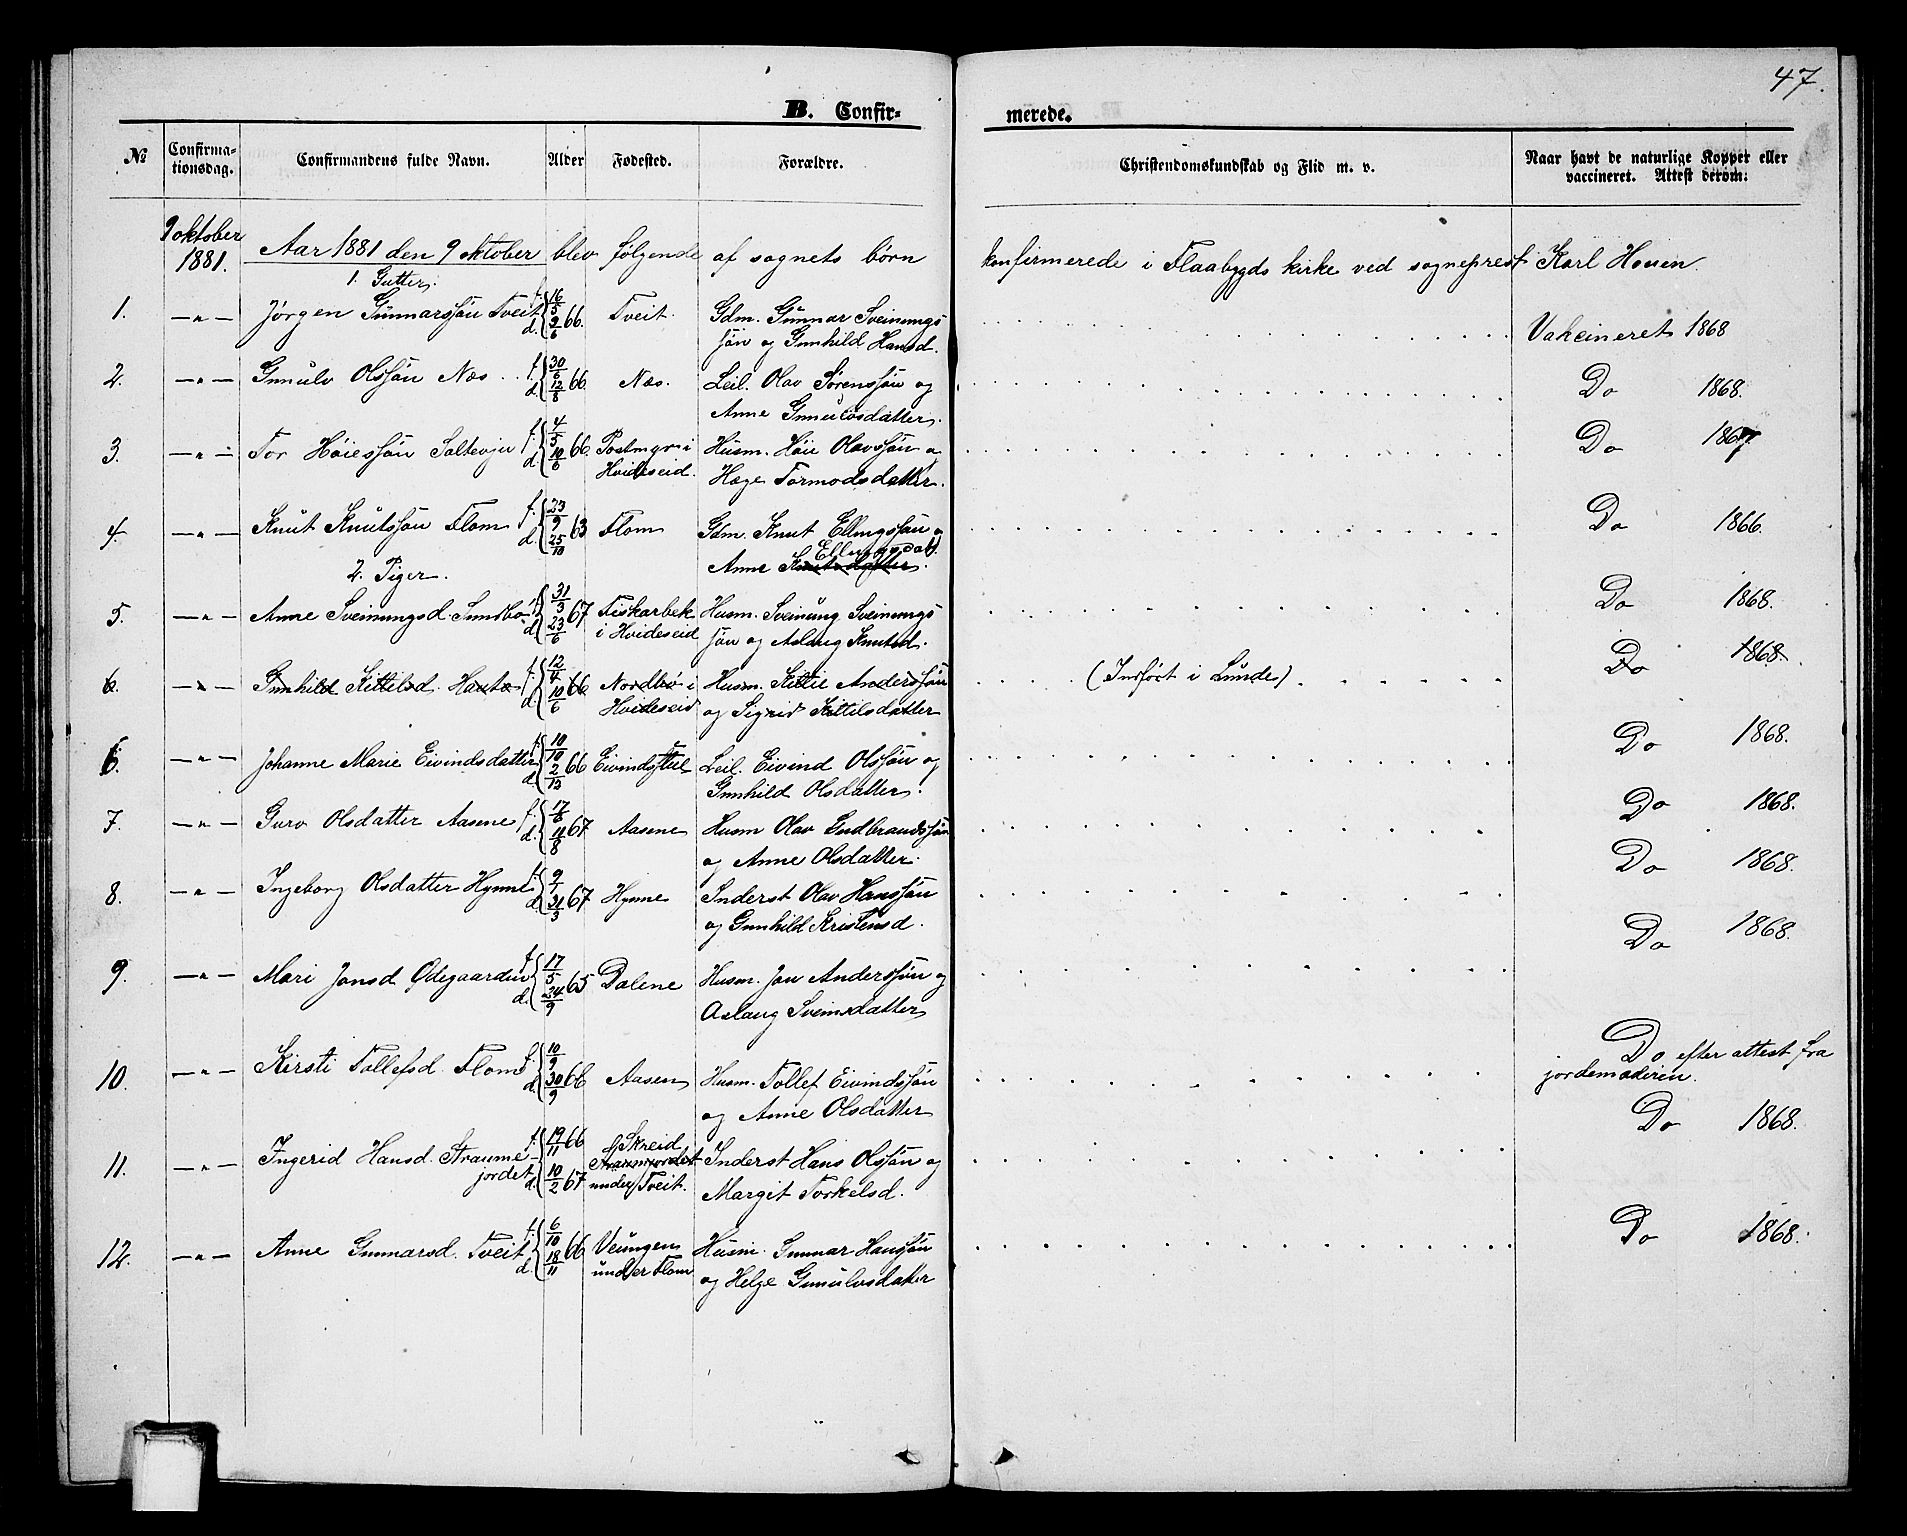 47.
B. Confir-
merede.
№ Confirma-tionsdag. Confirmandens fulde Navn. Alder Fødested. Forældre. Christendomskundskab og Flid m. v. Naar havt de naturlige Kopper eller vaccineret. Attest derom:
9 oktober 1881. Aar 1881 den 9 oktober blev følgende af sognets børn konfirmerede i Flaabygds kirke ved sogneprest Karl Houen.
1. Gutter.
1. —"— Jørgen Gunnarssøn Tveit f. 16/5 d. 9/6 66. Tveit. Gdm. Gunnar Sveinungs
søn og Gunhild Hansd. Vakcineret 1868
2. —"— Gunulv Olssøn Næs f. 30/6 d. 12/8 66. Næs. Leil. Olav Sørenssøn og
Anne Gunulvsdatter. Do 1868.
3. —"— Tor Høiessøn f. 4/5 d. 10/6 66. i
Hvideseid. Husm. Høie Olavssøn og
Hæge Tormodsdatter. Do 1867
4. —"— Knut Knutssøn Flom f. 23/9 d. 25/10 63 Flom Gdm. Knut Ellingssøn og
Ellingsdat.
Anne Knutsdatter. Do 1866.
2. Piger.
5. —"— Anne Sveinungsd. Sundbø f. 31/3 d. 23/6 67 Fiskarbek
i Hvideseid Husm. Sveinung Sveinungs
søn og Aslaug Knutsd. Do 1868.
6. —"— Gunhild Kittilsd. Hauta f. 12/4 d. 10/6 66. Nordbø i
Hvideseid Husm. Kittil Anderssøn
og Sigrid Kittilsdatter (Indført i Lunde) Do 1868.
6. —"— Johanne Marie Eivindsdatter f. 10/10 d. 2/12 66 Eivindstul Leil. Eivind Olssøn og
Gunhild Olsdatter. Do 1868.
7. —"— Guro Olsdatter Aasene f. 17/6 d. 11/8 67 Aasene Husm Olav Gudbrandssøn
og Anne Olsdatter. Do 1868.
8. —"— Ingeborg Olsdatter Hynne f. 9/1 d. 31/3 67 Hynne Inderst Olav Hanssøn
og Gunhild Kristensd. Do 1868.
9. —"— Mari Jonsd Ødegaarden f. 17/5 d. 24/9 65 Dalene Husm. Jon Anderssøn og
Aslaug Sveinsdatter Do 1868.
10. —"— Kirsti Tollefsd. Flom f. 10/9 d. 30/9 66 Aasen Husm. Tollef Eivindssøn
og Anne Olsdatter Do efter attest fra
jordemoderen.
11. —"— Ingerid Hansd. Straume-
jordet f. 19/11 66 d. 10/2 67 Skreid
Straumjordet
under Tveit. Inderst Hans Olssøn og
Margit Torkelsd. Do 1868.
12. —"— Anne Gunnarsd. Tveit f. 6/10 d. 18/11 66 Veungen
under Flom Husm. Gunnar Hanssøn
og Helge Gunulvsdatter Do 1868.